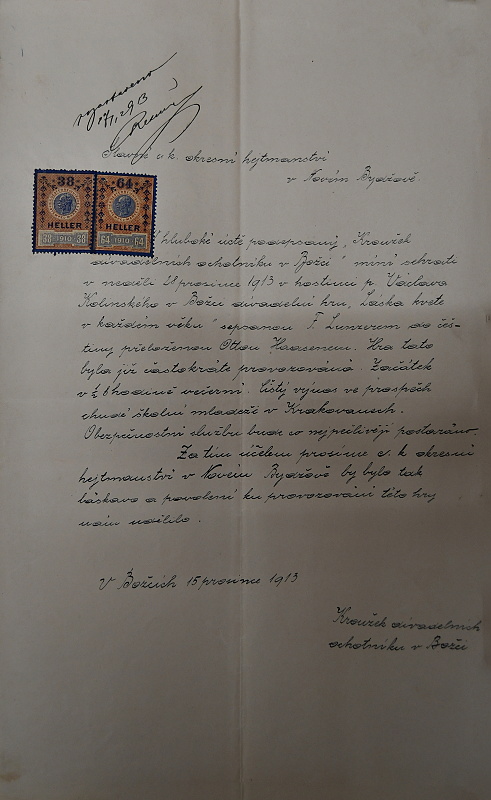 17/12 913
Slavné c. k. okresní hejtmanství
v Novém Bydžově.
38 64
HELLER HELLER
38 1910 38 64 1910 64
V hluboké úctě podepsaný „Kroužek
divadelních ochotníku v Božci" míní sehrati
v neděli 28 prosince 1913 v hostinci p. Václava
Kolínského v Božci divadelní hru, Láska kvete
v každém věku" sepsanou F. Lunzerem do češ-
tiny přeloženou Ottou Haasenem. Hra tato
byla již častokráte provozována. Začátek
v ½ 6 hodině večerní. Čistý výnos ve prospěch
chudé školní mládeže v Krakovanech.
Obezpečnostní službu bude co nejpečlivěji postaráno.
Za tím účelem prosíme c. k. okresní
hejtmanství v Novém Bydžově by bylo tak
láskavo a povolení ku provozování této hry
nám udělilo.
V Božcích 15 prosince 1913
Kroužek divadelních
ochotníku v Božci